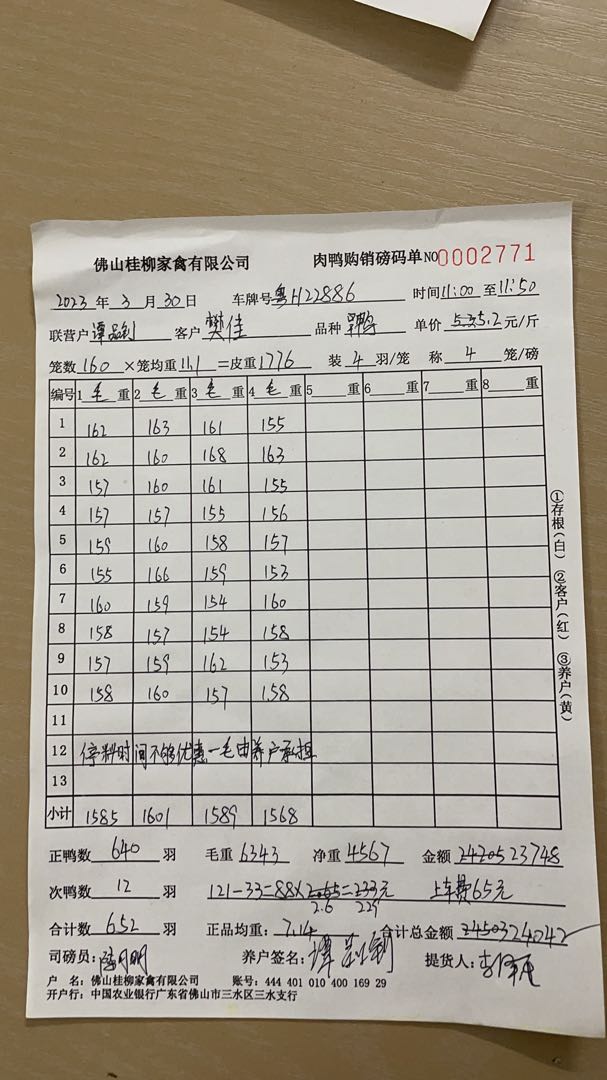 佛山桂柳家禽有限公司 肉鸭购销磅码单 NO 0002771
2023 年 3 月 30 日 车牌号 粤H22886 时间 11:00 至 11:50
联营户 客户 樊佳 品种 单价 5.2 元/斤
笼数 160 ×笼均重 11.1 =皮重 1776 装 4 羽/笼 称 4 笼/磅
编号 1 毛 重 2 毛 重 3 毛 重 4 毛 重 5 重 6 重 7 重 8 重
1 162 163 161 155
2 162 160 168 163
3 157 160 161 155
4 157 157 155 156
5 159 160 158 157
6 155 166 159 153
7 160 159 154 160
8 158 157 154 158
9 157 159 162 153
10 158 160 157 158
11
12 停料时间不够优惠一毛由养户承担
13
小计 1585 1601 1589 1568
正鸭数 640 羽 毛重 6343 净重 4567 金额 23748
次鸭数 12 羽 121-33=88× = 元 上车费65元
2.6 229
合计数 652 羽 正品均重: 7.14 合计总金额 24042
司磅员: 养户签名: 提货人:
户 名: 佛山桂柳家禽有限公司 账号: 444 401 010 400 169 29
开户行: 中国农业银行广东省佛山市三水区三水支行
①存根(白) ②客户(红) ③养户(黄)